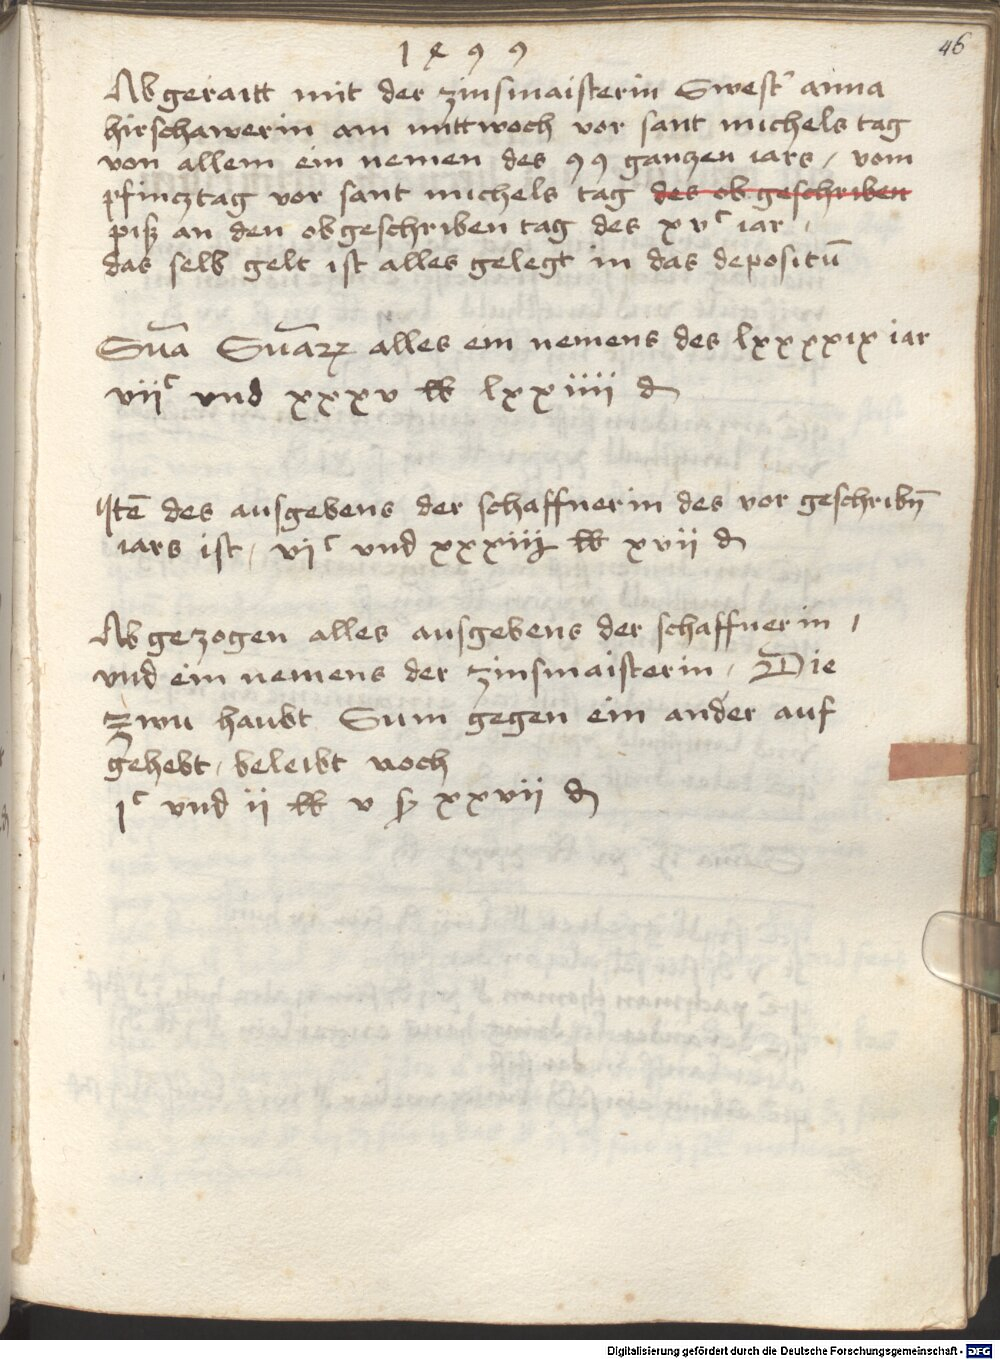 46
1499
Abgeraitt mit der zinsmaisterin Swest' anna
hirschawerin am mittwoch vor sant michels tag
von allem ein nemen des 99 ganczen iars / vom
pfincztag vor sant michels tag des ob geschriben
pisz an den obgeschriben tag des xvc iar /
das selb gelt ist alles gelegt in das depositū
Sūa Sūaꝝ alles ein nemens des lxxxxix iar
viic vnd xxxv lb lxxiiii d
Itē des ausgebens der schaffnerin des vor geschribn̄
iars ist / vic vnd xxxiii lb xvii d
Ab gezogen alles ausgebens der schaffnerin /
vnd ein nemens der zinsmaisterin / Die
zwu haubt Sum gegen ein ander auf
gehebt / beleibt noch
ic vnd ii lb v ß xxvii d
Digitalisierung gefördert durch die Deutsche Forschungsgemeinschaft - DFG